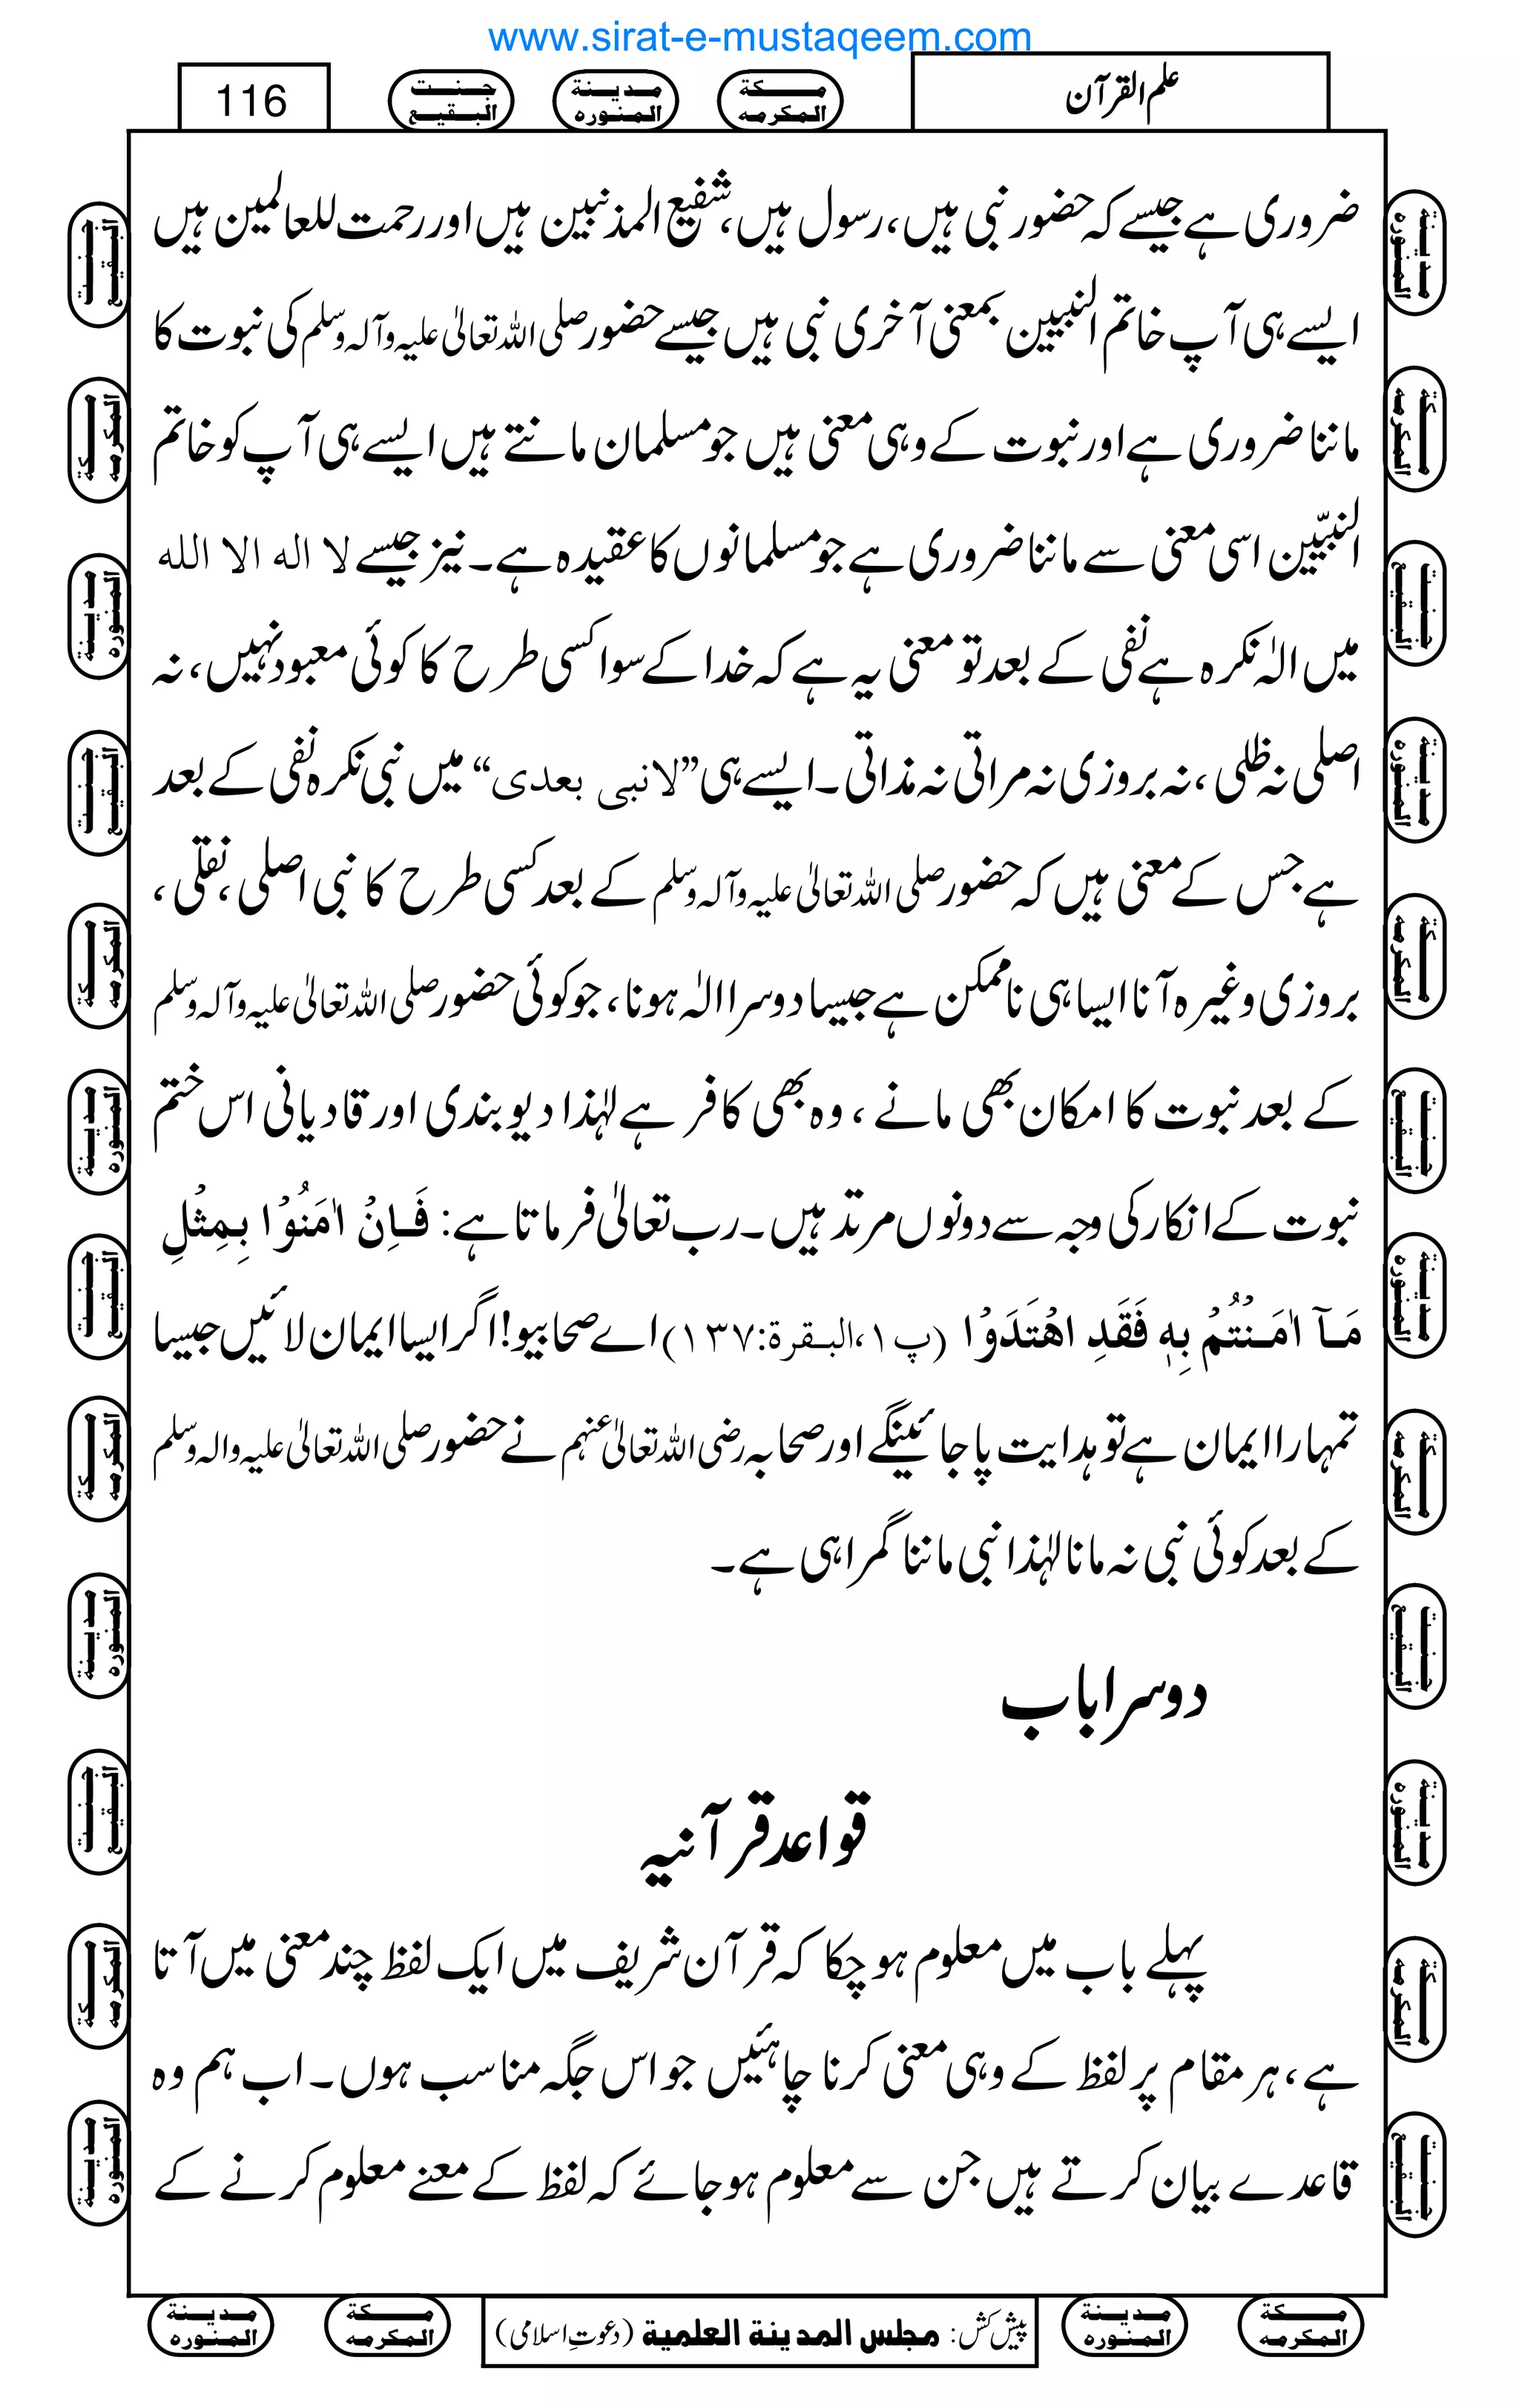 www.sirat-e-mustaqeem.com
علم القرآن
مكة المكرمه
مدينة المنوره
جنت البقيع
116
ضروری ہے جیسے کہ حضور نبی ہیں، رسول ہیں، شفیع المذنبین ہیں اور رحمت للعالمین ہیں
ایسے ہی آپ خاتم النبیین بمعنی آخری نبی ہیں جیسے حضور صلی اللہ تعالیٰ علیہ وآلہ وسلم کی نبوت کا
ماننا ضروری ہے اور نبوت کے وہی معنی ہیں جو مسلمان مانتے ہیں ایسے ہی آپ کو خاتم
النبیّین اسی معنی سے ماننا ضروری ہے جو مسلمانوں کا عقیدہ ہے۔ نیز جیسے لا اله الا الله
میں الٰہ نکرہ ہے نفی کے بعد تو معنی یہ ہے کہ خدا کے سوا کسی طرح کا کوئی معبود نہیں، نہ
اصلی نہ ظلی، نہ بروزی نہ مراتی نہ مذاتی۔ ایسے ہی ”لانبی بعدی“ میں نبی نکرہ نفی کے بعد
ہے جس کے معنی ہیں کہ حضور صلی اللہ تعالیٰ علیہ وآلہ وسلم کے بعد کسی طرح کا نبی اصلی، نقلی،
بروزی وغیرہ آنا ایسا ہی ناممکن ہے جیسا دوسرا الٰہ ہونا، جو کوئی حضور صلی اللہ تعالیٰ علیہ وآلہ وسلم
کے بعد نبوت کا امکان بھی مانے ، وہ بھی کافر ہے لہٰذا دیوبندی اور قادیانی اس ختم
نبوت کے انکار کی وجہ سے دونوں مرتد ہیں۔ رب تعالیٰ فرماتا ہے: فَاِنْ اٰمَنُوْا بِمِثْلِ
مَآ اٰمَنْتُمْ بِهٖ فَقَدِ اهْتَدَوْا (پ١،البقرة:١٣٧) اے صحابیو! اگر ایسا ایمان لائیں جیسا
تمہارا ایمان ہے تو ہدایت پا جائینگے اور صحابہ رضی اللہ تعالیٰ عنہم نے حضور صلی اللہ تعالیٰ علیہ والہ وسلم
کے بعد کوئی نبی نہ مانا لہٰذا نبی ماننا گمراہی ہے۔
دوسرا باب
قواعد قرآنیہ
پہلے باب میں معلوم ہو چکا کہ قرآن شریف میں ایک لفظ چند معنی میں آتا
ہے، ہر مقام پر لفظ کے وہی معنی کرنا چاہئیں جو اس جگہ مناسب ہوں۔ اب ہم وہ
قاعدے بیان کرتے ہیں جن سے معلوم ہو جائے کہ لفظ کے معنے معلوم کرنے کے
مكة المكرمه
مدينة المنوره
پیش کش: مجلس المدينة العلمية (دعوتِ اسلامی)
مكة المكرمه
مدينة المنوره